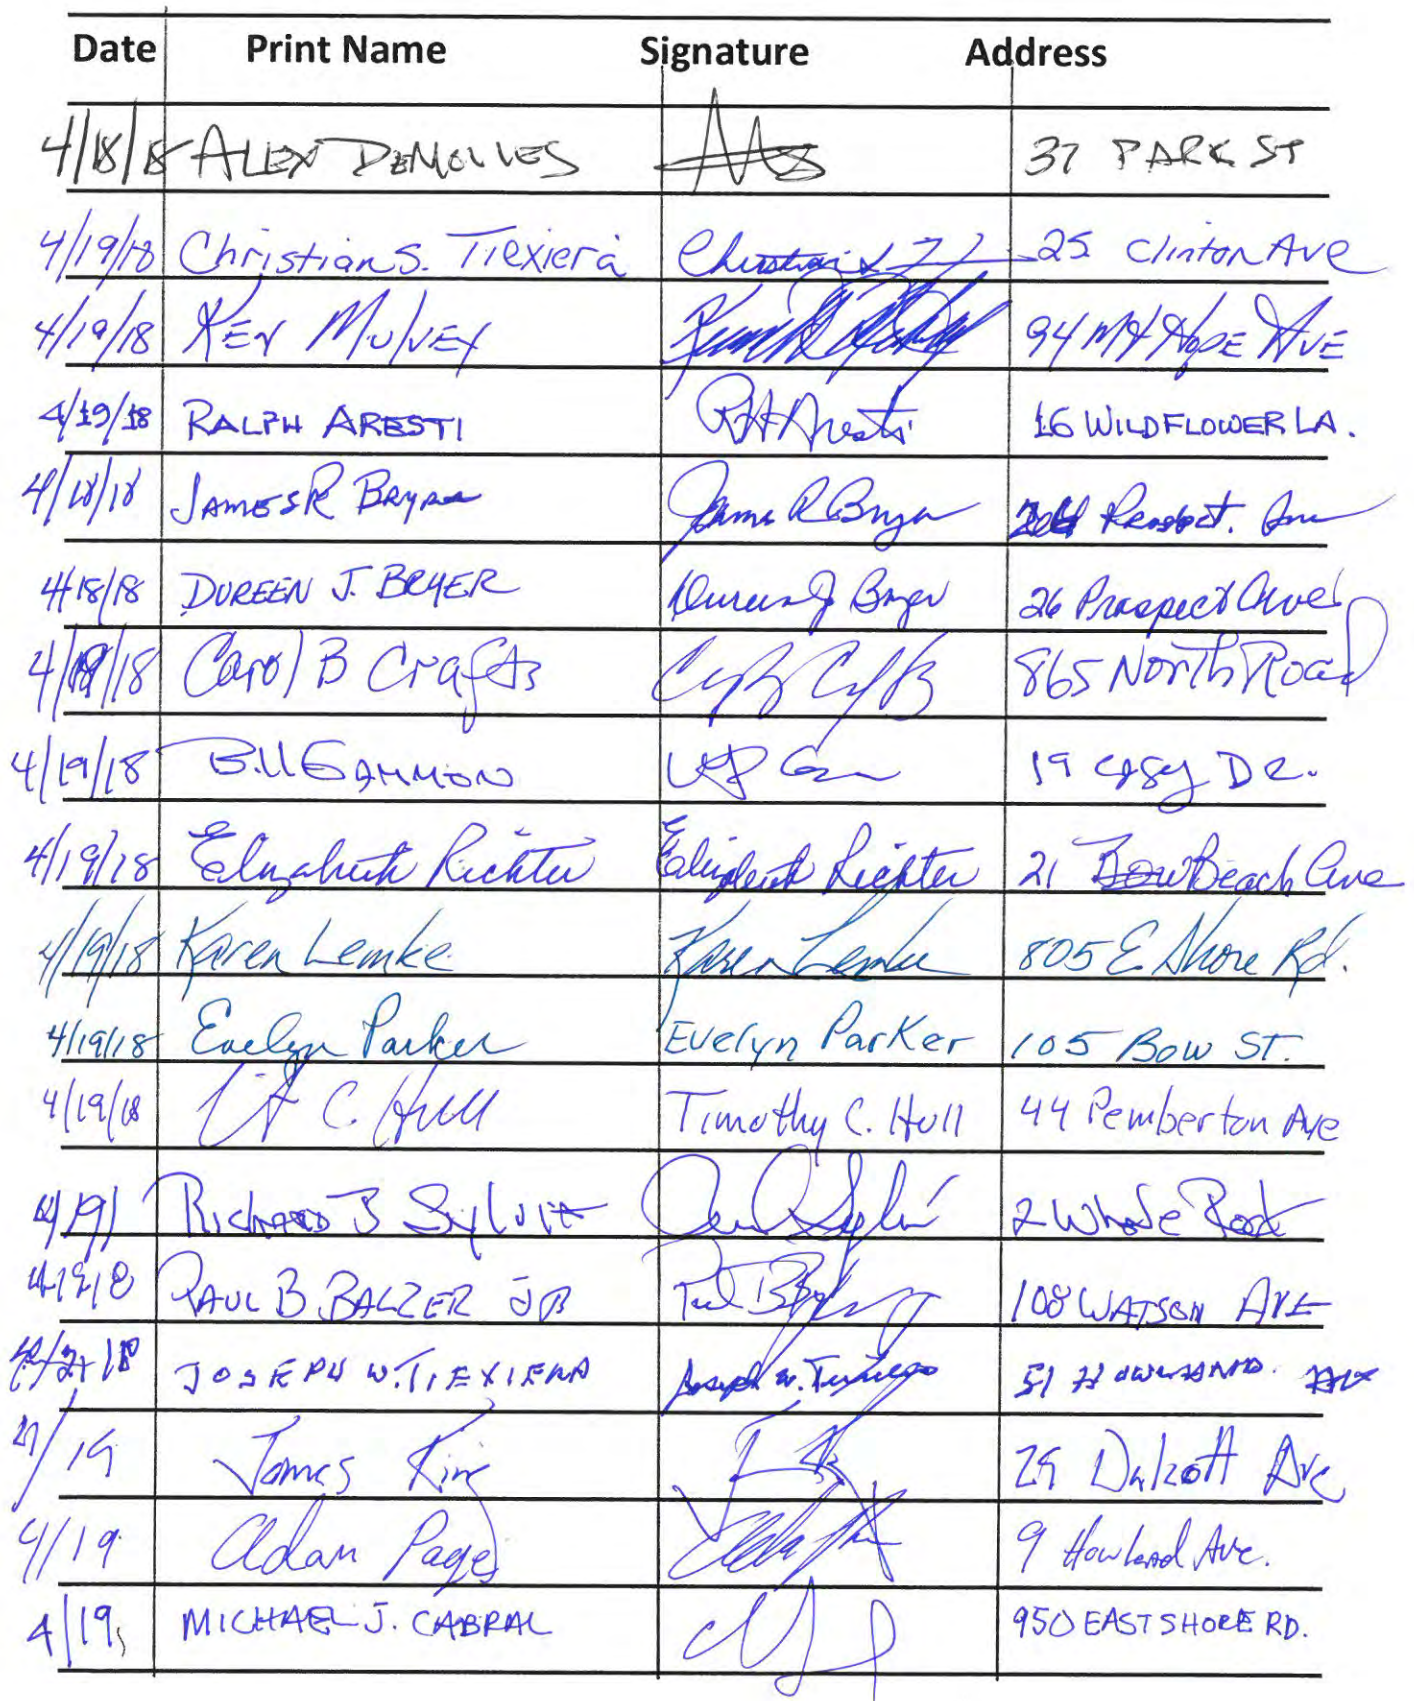 Date Print Name Signature Address
4/18/18 ALEX DEMOLLES 37 PARK ST
4/19/18 Christian S. Tiexiera 25 Clinton Ave
4/19/18 KEN MULVEY 94 Mt Hope AVE
4/19/18 RALPH ARESTI RH Aresti 16 WILDFLOWER LA.
4/18/18 JAMES R James R Bryer Prospect. Ave
4/18/18 DOREEN J. BRYER Doreen J Bryer 26 Prospect Ave
4/19/18 Carol B Crafts 865 North Road
4/19/18 Bill GAMMON 19 DR.
4/19/18 Elizabeth Richter Elizabeth Richter 21 Beach Ave
4/19/18 Karen Lemke Karen Lemke 805 E Shore Rd.
4/19/18 Evelyn Parker Evelyn Parker 105 Bow ST.
4/19/18 C. Hull Timothy C. Hull 44 Pemberton Ave
4/19/ RICHARD B SYLVIA 2
PAUL B BALZER JR 108 WATSON AVE
JOSEPH W. TIEXIERA Joseph W. 51 HOWLAND. AVE
4/19 James King Ave
4/19 Adam Page 9 Howland Ave.
4/19, MICHAEL J. CABRAL 950 EAST SHORE RD.